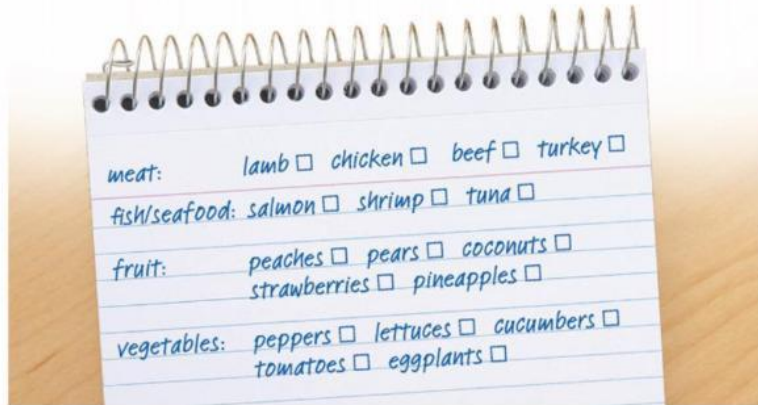 meat: lamb □ chicken □ beef □ turkey □
fish/seafood: salmon □ shrimp □ tuna □
fruit: peaches □ pears □ coconuts □
strawberries □ pineapples □
vegetables: peppers □ lettuces □ cucumbers □
tomatoes □ eggplants □